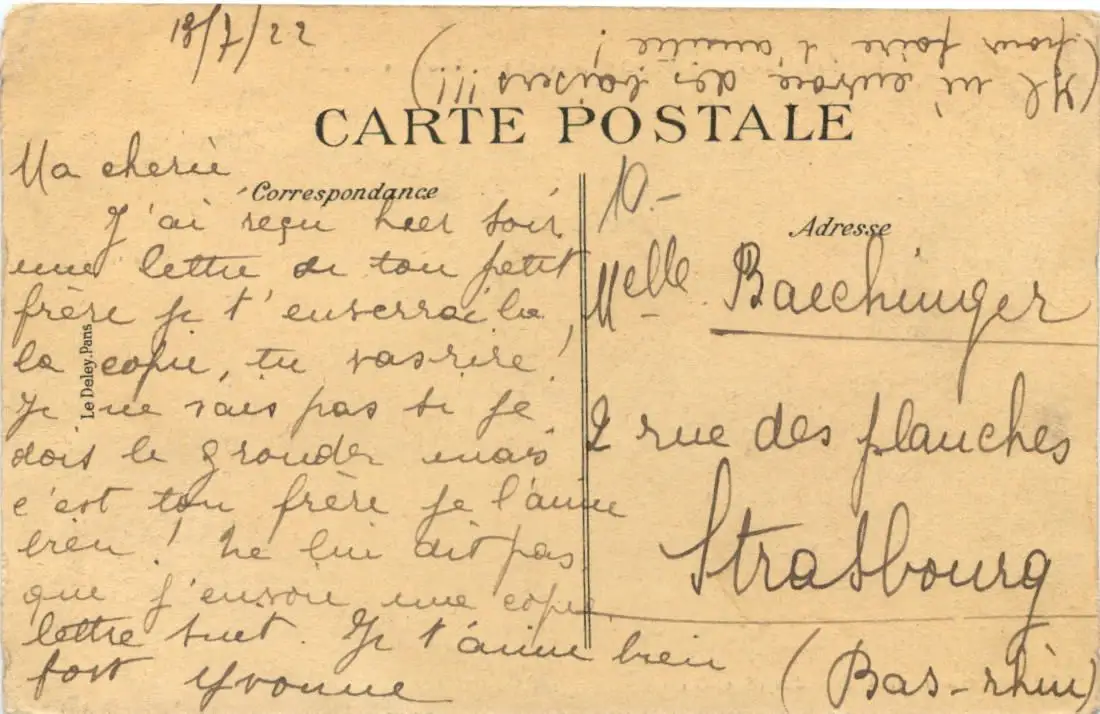 18/7/22
(Il m'envoie des baisers !!!
pour faire l'amitié !)
CARTE POSTALE
Correspondance
Ma cherie
J'ai reçu hier soir
une lettre de ton petit
frère je t'enverrai la
la copie, tu vas rire !
Je ne sais pas si je
dois le gronder mais
c'est ton frère je l'aime
bien ! Ne lui dit pas
que j'envoie une copie
lettre suit. Je t'aime bien
fort Yvonne
Le Deley, Paris
Adresse
10.-
Melle. Baechinger
2 rue des planches
Strasbourg
(Bas-rhin)